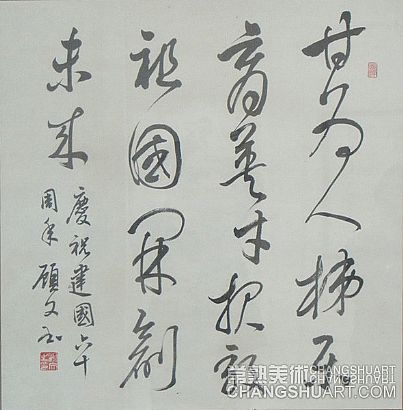 甘为人梯
育英才报效
祖國開創
未来
慶祝建國六十
周年 顧文
常熟美術 CHANGSHUART
CHANGSHUART.COM